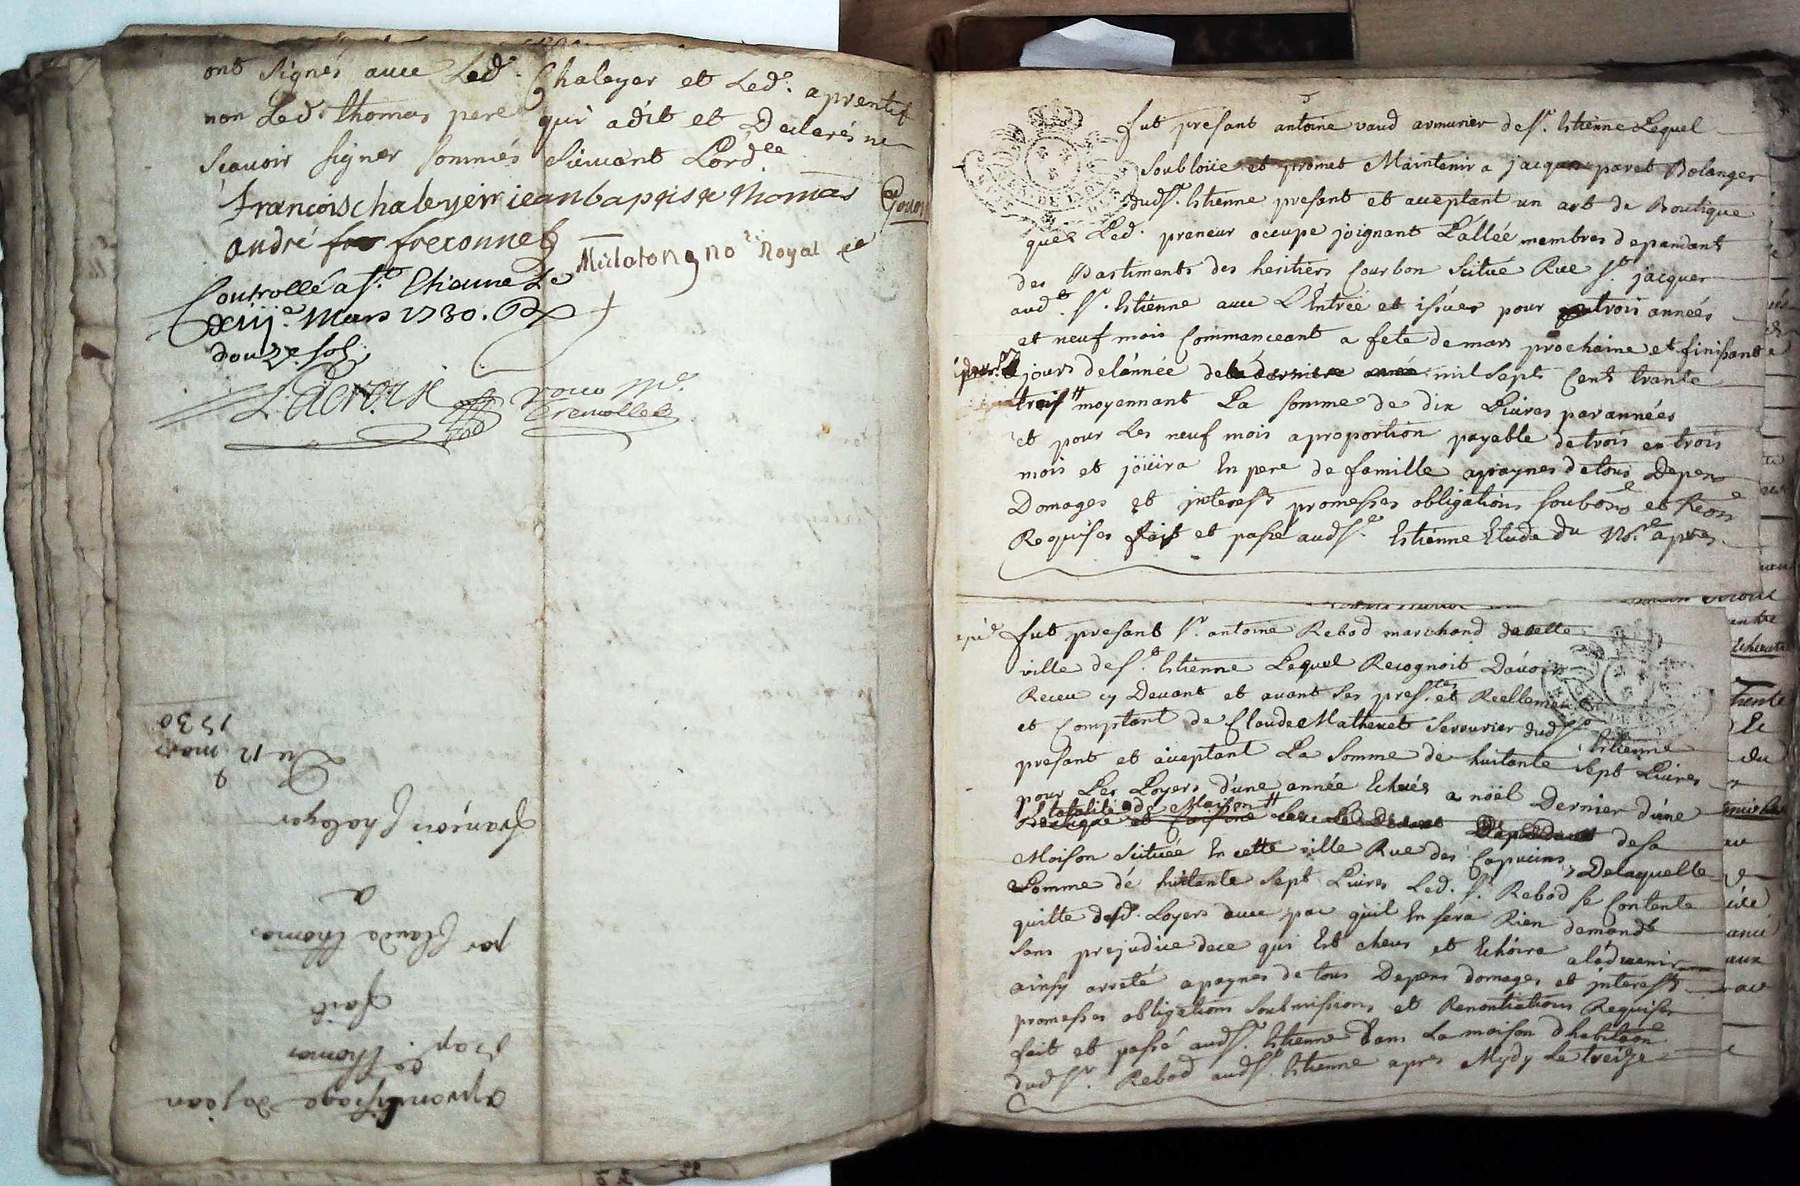 ont signés avec Led. Chaleyer et Led. aprentif
non Led. thomas pere qui adit et Declarés ne
scavoir signer sommés suivant Lordce
François chaleyer jean baptiste thomas
andré freconnet
Mulaton no.re Royal
Controllé a St. Etienne Le
xiije. Mars 1730. R
douze sols
Lacroix
aprentissage de jean
bap.te thomas
fait
par Claude thomas
a
françois Chaleyer
9
Du 12 mars
1730
fut presant antoine vaud armurier de St. Estienne Lequel
soubloüe et promet Maintenir a jacques paret Bolanger
dud St. Estienne presant et aceptant un art de Boutique
que Led. preneur occupe joignant L'allée membres depandant
des Bastiments des heritiers Courbon Scitué Rue St. jacques
aud. St. Estienne avec L'Entrée et issües pour trois années
et neuf mois Commanceant a fete de mars prochaine et finissant
jours de l'année de la derniere année mil sept Cent trante
trois moyennant La somme de dix Livres par années
et pour Les neuf mois a proportion payable de trois en trois
mois et joüira En pere de famille apaynes de tous Depens
Domages et interests promesses obligations soubons et Reons
Requises fait et passé aud St. Estienne Etude du Nore. apres
fut presant Sr. antoine Rebod marchand de cette
ville de St. Estienne Lequel Recognoit Davoir
Receu cy Devant et avant ses pres.tes et Reellement
et Comptant de Claude Mathevet Serrurier dud St. Estienne
presant et aceptant La Somme de huitante sept Livres
pour Les Loyers d'une année Echües a noël Dernier d'une
totalité de Maison
Boutique et
de sa
Maison Scituée En cette ville Rue des Capucins, De laquelle
Somme de huitante sept Livres Led. Sr. Rebod se Contente
quitte desd. Loyers avec pac qu'il En sera Rien demandé
sans prejudice de ce qui Est cheus et Echoira a l'advenir
ainsy arreté apaynes de tous Depens domages et interests
promesses obligations soubmissions et Renontiations Requises
fait et passé aud St. Estienne Dans La maison d'habitaon
dud Sr. Rebod aud St. Estienne apres Mydy Le treize